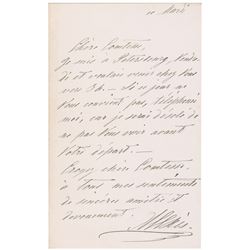 11 Mars
Chère Comtesse,
Je suis à Petersbourg, Vendre-
di et voulais venir chez Vous
vers 5h. – Si ce jour ne
Vous convient pas, téléphonez
moi, car je serai désolé de
ne pas Vous voir avant
Votre départ. –
Croyez, chère Comtesse,
à tous mes sentiments
de sincère amitié et
dévouement.